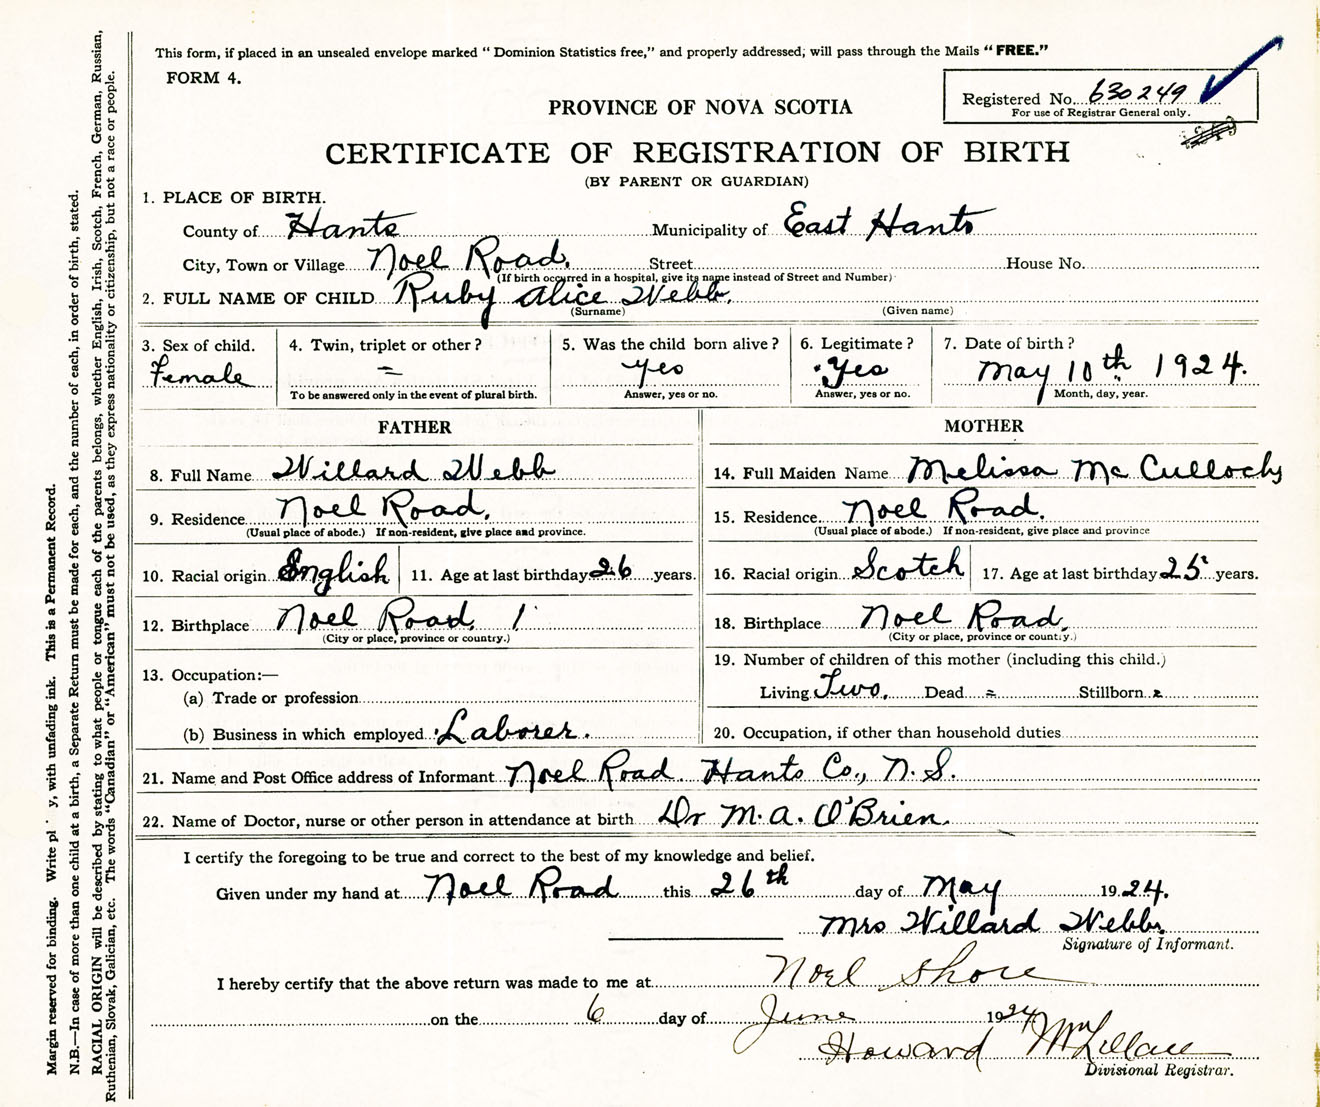 This form, if placed in an unsealed envelope marked "Dominion Statistics free," and properly addressed, will pass through the Mails "FREE."
FORM 4.
Registered No. 630249
For use of Registrar General only.
PROVINCE OF NOVA SCOTIA
CERTIFICATE OF REGISTRATION OF BIRTH
(BY PARENT OR GUARDIAN)
1. PLACE OF BIRTH.
County of Hants Municipality of East Hants
City, Town or Village Noel Road. Street House No.
(If birth occurred in a hospital, give its name instead of Street and Number)
2. FULL NAME OF CHILD Ruby Alice Webb.
(Surname) (Given name)
3. Sex of child. 4. Twin, triplet or other? 5. Was the child born alive? 6. Legitimate? 7. Date of birth?
Female = yes Yes May 10th 1924.
To be answered only in the event of plural birth. Answer, yes or no. Answer, yes or no. Month, day, year.
FATHER MOTHER
8. Full Name Willard Webb 14. Full Maiden Name Melissa Mc Cullochy
9. Residence Noel Road. 15. Residence Noel Road.
(Usual place of abode.) If non-resident, give place and province. (Usual place of abode.) If non-resident, give place and province
10. Racial origin English 11. Age at last birthday 26 years. 16. Racial origin Scotch 17. Age at last birthday 25 years.
12. Birthplace Noel Road. 18. Birthplace Noel Road.
(City or place, province or country.) (City or place, province or country.)
13. Occupation:— 19. Number of children of this mother (including this child.)
(a) Trade or profession Living Two. Dead = Stillborn
(b) Business in which employed Laborer. 20. Occupation, if other than household duties
21. Name and Post Office address of Informant Noel Road Hants Co., N.S.
22. Name of Doctor, nurse or other person in attendance at birth Dr M.A. O'Brien.
I certify the foregoing to be true and correct to the best of my knowledge and belief.
Given under my hand at Noel Road this 26th day of May 1924.
Mrs Willard Webb.
Signature of Informant.
I hereby certify that the above return was made to me at Noel Shore
on the 6 day of June 1924
Howard
Divisional Registrar.
Margin reserved for binding. Write pl y, with unfading ink. This is a Permanent Record.
N.B.—In case of more than one child at a birth, a Separate Return must be made for each, and the number of each, in order of birth, stated.
RACIAL ORIGIN will be described by stating to what people or tongue each of the parents belongs, whether English, Irish, Scotch, French, German, Russian,
Ruthenian, Slovak, Galician, etc. The words "Canadian" or "American" must not be used, as they express nationality or citizenship, but not a race or people.